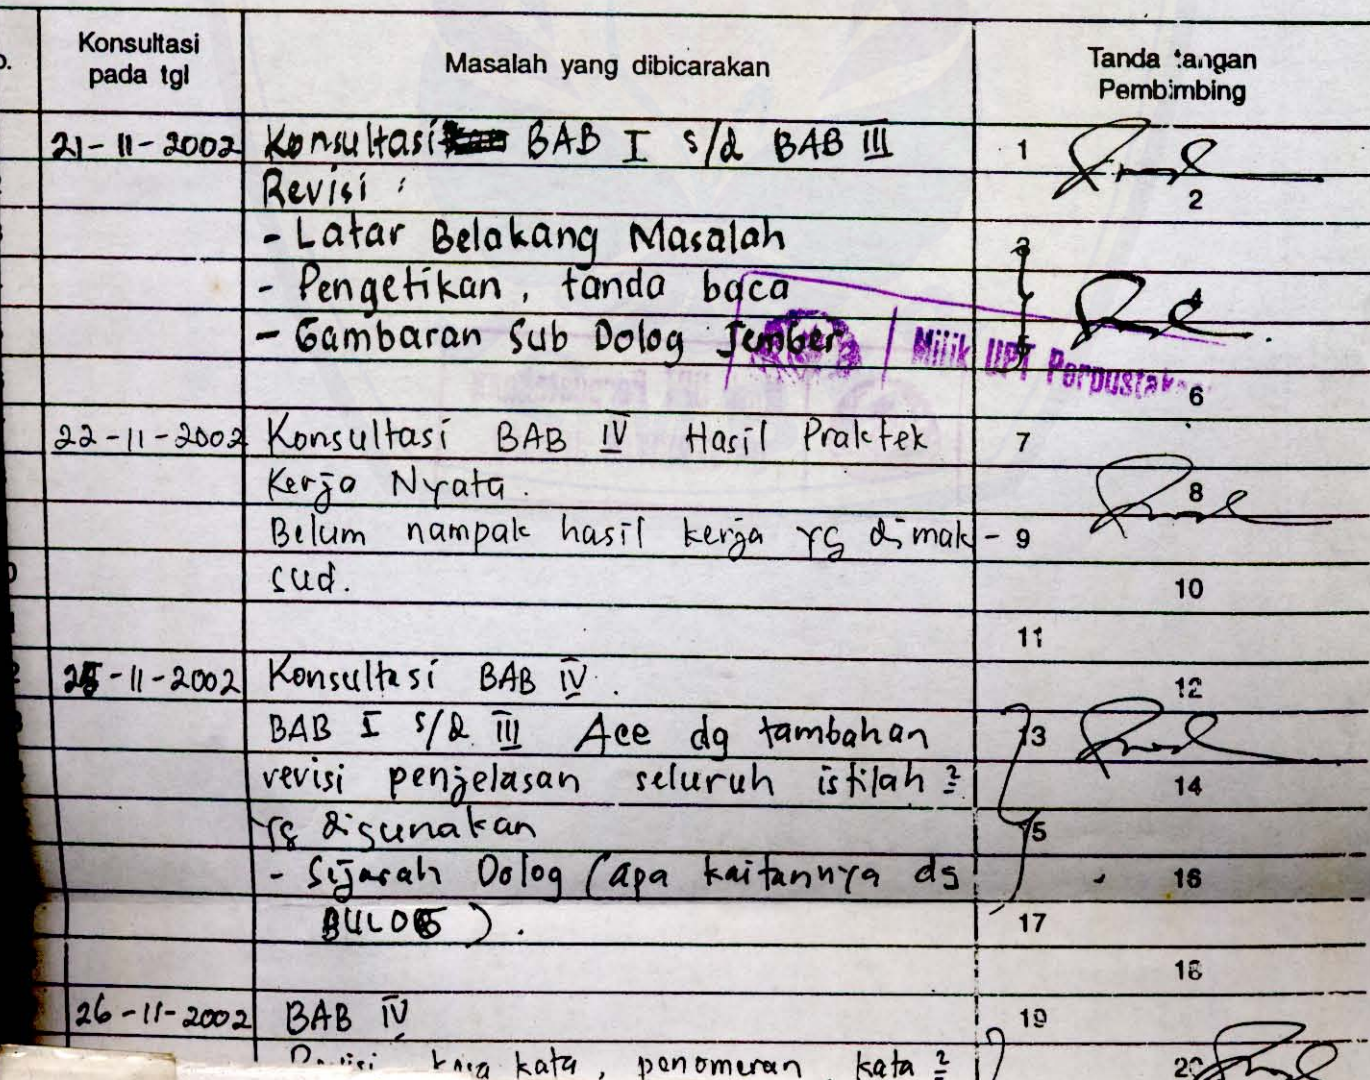 Konsultasi
pada tgl
Masalah yang dibicarakan
Tanda tangan
Pembimbing
21-11-2002 Konsultasi BAB I s/d BAB III 1
Revisi : 2
- Latar Belakang Masalah 3
- Pengetikan, tanda baca 4
- Gambaran Sub Dolog Jember
Milik UPT Perpustakaan
6
22-11-2002 Konsultasi BAB IV Hasil Praktek 7
Kerja Nyata. 8
Belum nampak hasil kerja yg dimak- 9
sud. 10
11
25-11-2002 Konsultasi BAB IV. 12
BAB I s/d III Acc dg tambahan 13
revisi penjelasan seluruh istilah2 14
yg digunakan 15
- Sejarah Dolog (apa kaitannya dg 16
BULOG). 17
18
26-11-2002 BAB IV 19
Revisi kata, penomeran kata2 20